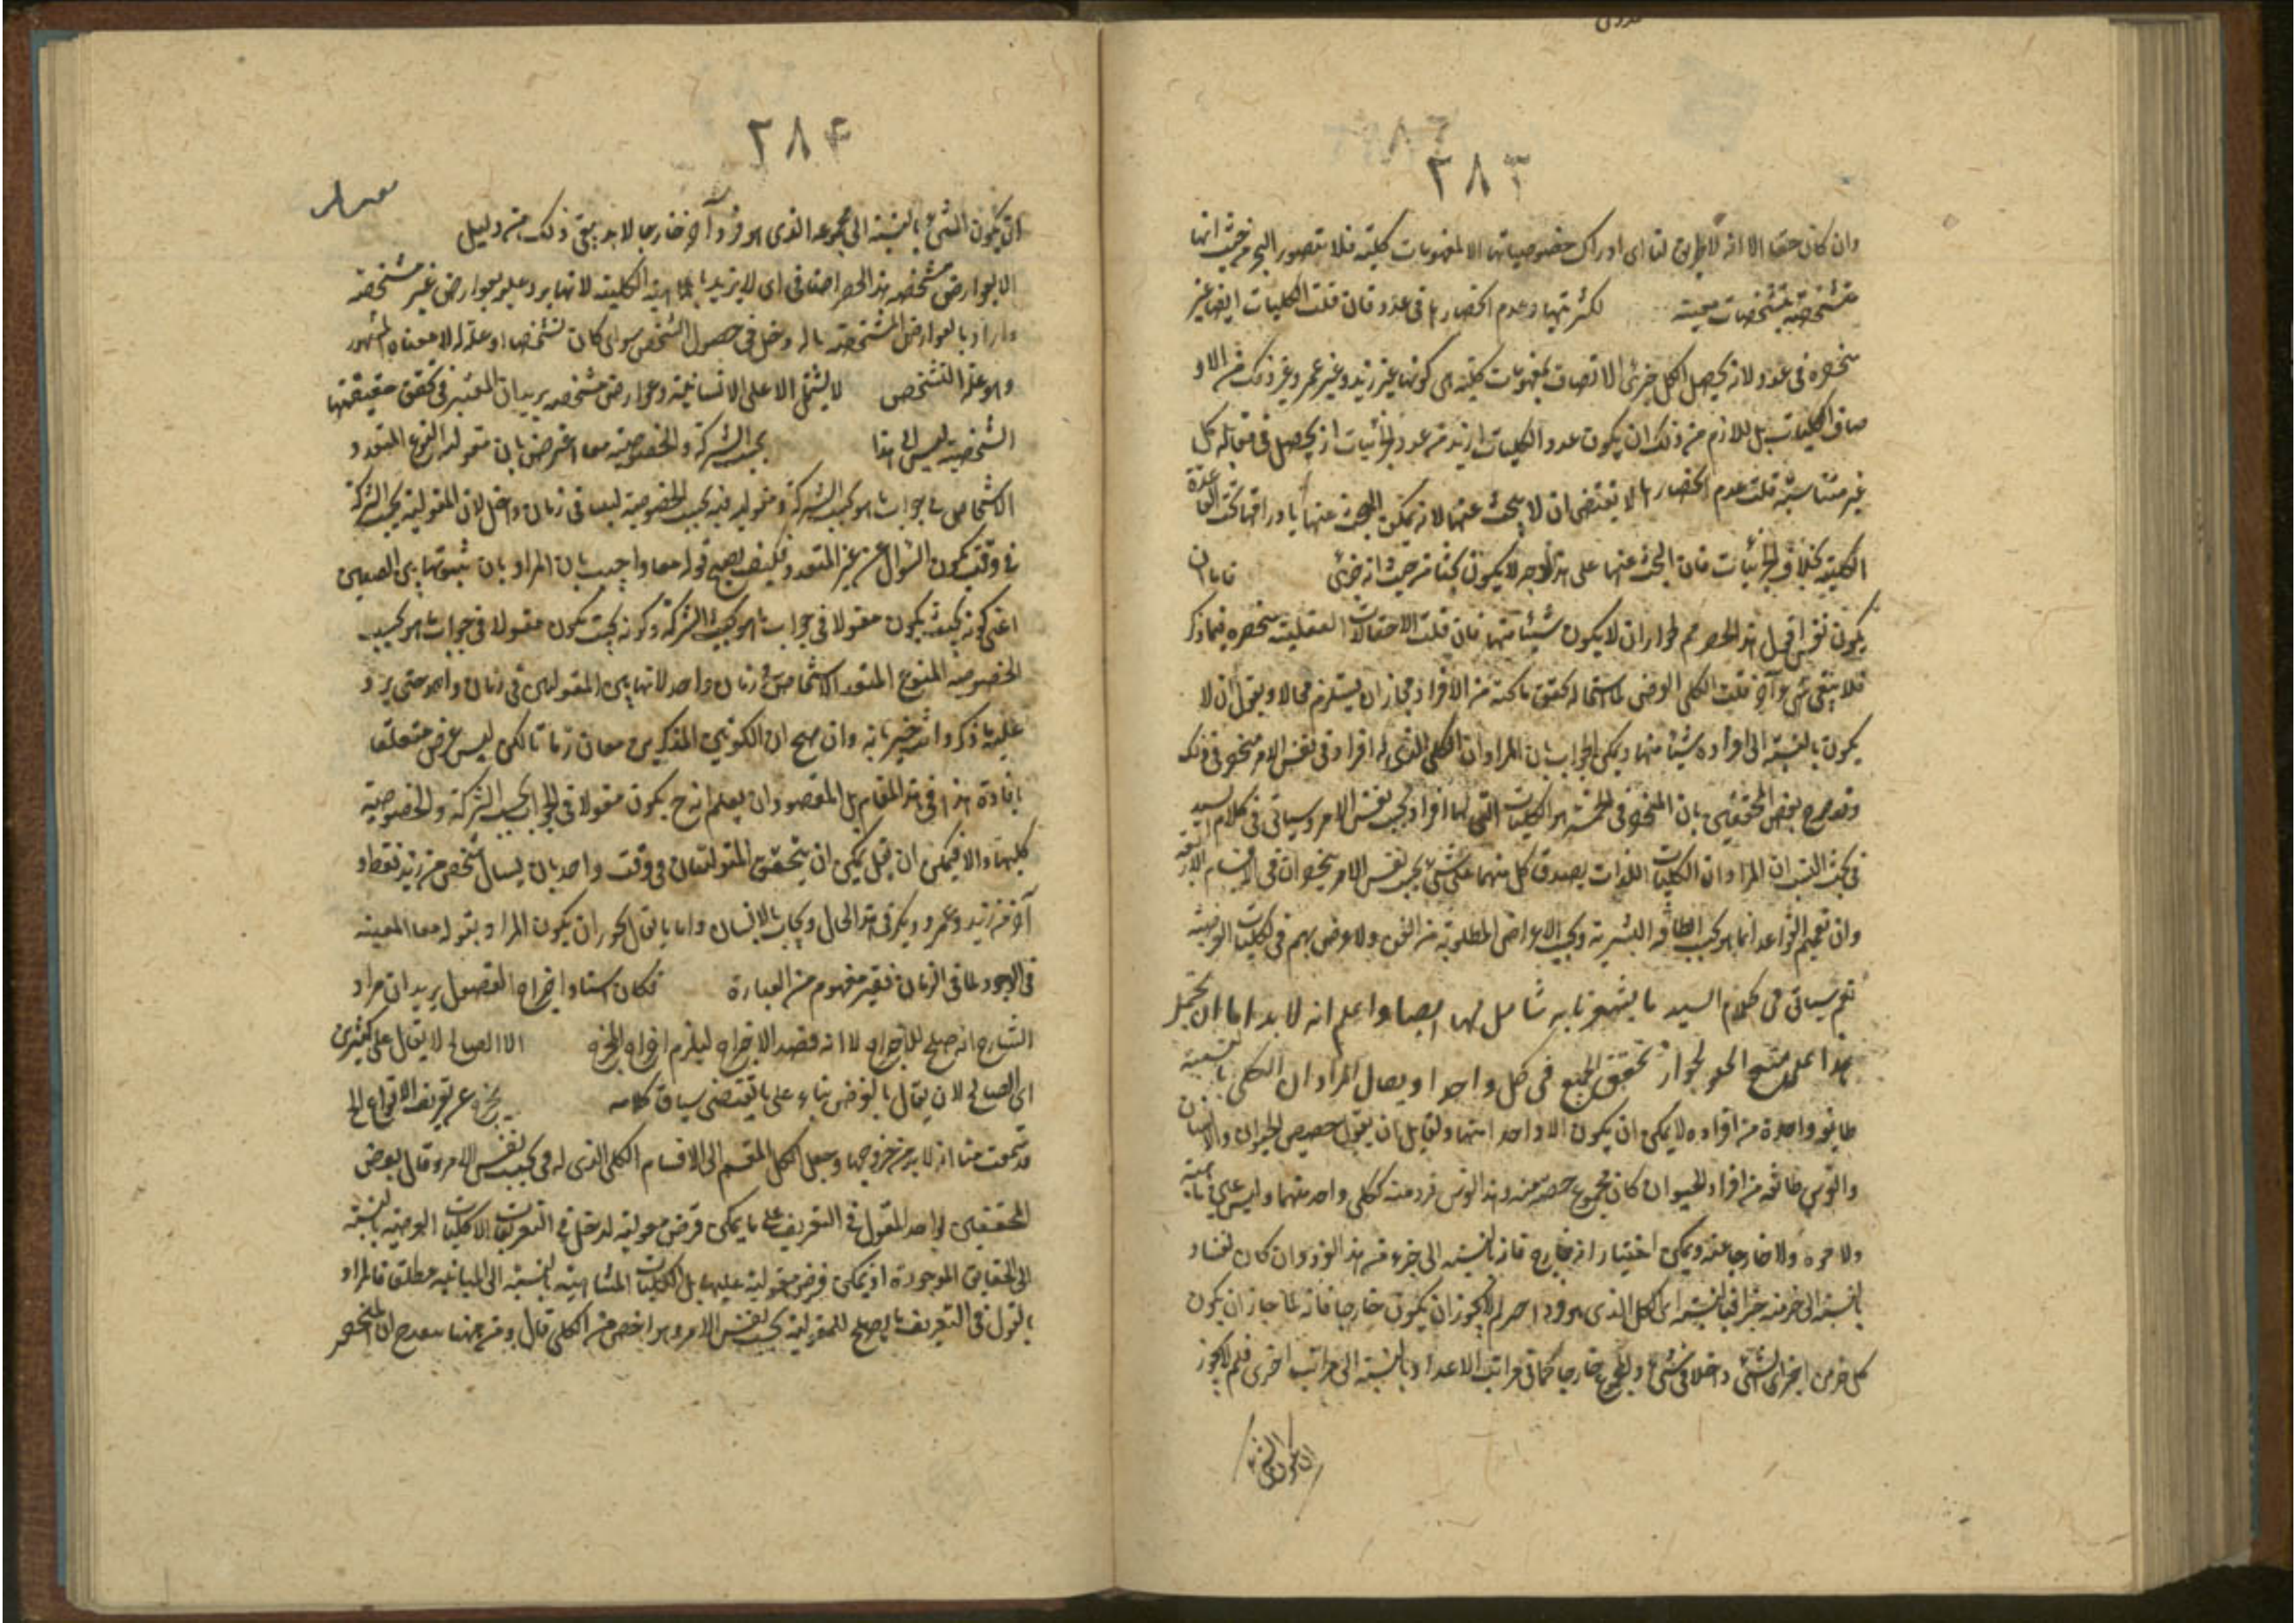 ٢٨٣
وان كان حقا الا انه لا طريق لنا اى ادراك خصوصياتها الا بمفهومات كلية فلا يتصور البحث من حيث انها
متشخصة بتشخصات معينة لكثرتها وعدم انحصارها فى عدد فان قلت الكليات ايضا غير
منحصرة فى عدد لانه يحصل لكل جزئى الاتصاف بمفهومات كلية هى كونها غير زيد وغير عمرو غير ذلك من الاو
صاف الكليات بل اللازم من ذلك ان يكون عدد الكليات ازيد من عدد الجزئيات اذ يحصل فى مقابلة كل
غير متناسبة قلت عدم انحصارها لا يقتضى ان لا يبحث عنها لانه يمكن البحث عنها بادراقها تحت القاعدة
الكلية بخلاف الجزئيات فان البحث عنها على هذا الوجه لا يكون بحثا من حيث انه جزئى فاما ان
يكون نفس قيل هذا الحصر ثم لجواز ان لا يكون شيئا منها فان قلت الاحتمالات العقلية منحصرة فيما ذكر
فلا يبقى شىء آخر قلت الكلى الفرضى لما استحال تحقق ما تحته من الافراد فجاز ان يستلزم محالا ويقول ان لا
يكون بالنسبة الى افراده شيئا منها ويمكن الجواب بان المراد ان الكلى الذى له افراد فى نفس الامر منحصر فى ذلك
وقد صرح بعض المحققين بان المنحصر فى الخمسة هو الكليات التى لها افراد بحسب نفس الامر وسياتى فى كلام السيد
فى بحث النسب ان المراد ان الكليات اللذان يصدق كل منهما على شىء بحسب نفس الامر ينحصران فى الاقسام الاربعة
وان تعميم القواعد انما هو بحسب الطاقة البشرية وبحسب الاعراض المطلوبة من الفن ولا غرض لهم فى الكليات الفرضية
نعم سياتى فى كلام السيد ما يشعر بانه شامل لها ايضا واعلم انه لا بد اما ان يحمل
هذا على منع الخلو لجواز تحقق الجميع فى كل واحد او يقال المراد ان الكلى بالنسبة
طايفة واحدة من افراده لا يمكن ان يكون الا واحدا منها ولقايل ان يقول حصص الحيوان والانسان
والفرس طائفة من افراد الحيوان كان مجموع حصصه وهذا الفرس فرد منه ككلى واحد منهما وليس عين ماهيته
ولا جزءه ولا خارجا عنه ويمكن اختيار انه خارج فانه بالنسبة الى جزء من هذا الفرد وان كان نفسا و
بالنسبة الى جزء منه جزءا فبالنسبة الى الكل الذى هو فرد آخر لم لا يجوز ان يكون خارجا فانه لما جاز ان يكون
كل جزء من اجزاء الشىء داخلا فى شىء والمجموع خارجا كما فى مراتب الاعداد بالنسبة الى مراتب اخرى فلم لا يجوز
ان يكون الشىء
٢٨٤
ان يكون الشىء بالنسبة الى مجموعه الذى هو فرد آخر خارجا لا بد بنفى ذلك من دليل
الا بعوارض مشخصه هذا الحصر اضافى اى لا يزيد بالماهية الكلية لا انها يرد عليه بعوارض غير مشخصة
واراد بالعوارض المشخصة ما له دخل فى حصول الشخص سواء كانت تشخصا او علة له لا معناه المشهور
وهو علة التشخص لا يشتمل الا على الانسانية وعوارض مشخصه يريد ان المعتبر فى تحقق حقيقتها
الشخصية ليس الا هذا بحسب الشركة والخصوصية معا اعترض بان مقولية النوع المتعدد
الاشخاص فى جواب ما هو بحسب الشركة ومقوليه فيه بحسب الخصوصية ليسا فى زمان واحد لان المقولية بحسب الشركة
فى وقت يكون السؤال عن غير المتعدد فكيف يصح قوله معا واجيب بان المراد بان ثبوتها بين الصفتين
اعنى كونه بحيث يكون مقولا فى جواب ما هو بحسب الشركة وكونه بحيث يكون مقولا فى جواب ما هو بحسب
الخصوصية للنوع المتعدد الاشخاص فى زمان واحد لا انها بين المقوليتين فى زمان واحد حتى يرد
عليه ما ذكر وانت خبير بانه وان صح ان الكونين المذكورين معان زمانا لكن ليس غرض متعلقا
بافادة هذا فى هذا المقام بل المقصود ان يعلم انه ح يكون مقولا فى الجواب بحسب الشركة والخصوصية
كليهما والا فيمكن ان يقال يمكن ان يتحقق المقوليتان فى وقت واحد بان يسال شخص من زيد فقط و
آخر من زيد وعمرو وبكر فى هذا الحال ويجاب بالانسان واما ما يقال يجوز ان يكون المراد بقوله معا المعية
فى الوجود لا فى الزمان فغير مفهوم من العبارة فكان اسناد اخراج الفصل يريد ان مراد
الشارح انه صلح للاخراج لا انه قصد الاخراج ليلزم اخراج المخرج الا الصالح لا يقال على كثيرين
اى الصالح لان يقال بالفرض بناء على ما يقتضى سياق كلامه يخرج عن تعريف الانواع الخ
قد سمعت منا انه لا بد من خروجها وجعل الكلى المقسم الى الاقسام الكلى الذى له فرد بحسب نفس الامر وقال بعض
المحققين لو اخذ المقول فى التعريف على ما يمكن فرض مقوليته لدخل فى التعريفات الكليات الفرضية بالنسبة
الى الحقايق الموجودة اذ يمكن فرض مقولية عليها بل الكليات المتباينة بالنسبة الى المباينة مطلقا فالمراد
بالقول فى التعريف ما يصلح للمقولية بحسب نفس الامر وهو اخص من الكلى قال ومن ههنا ينقدح ان المنحصر